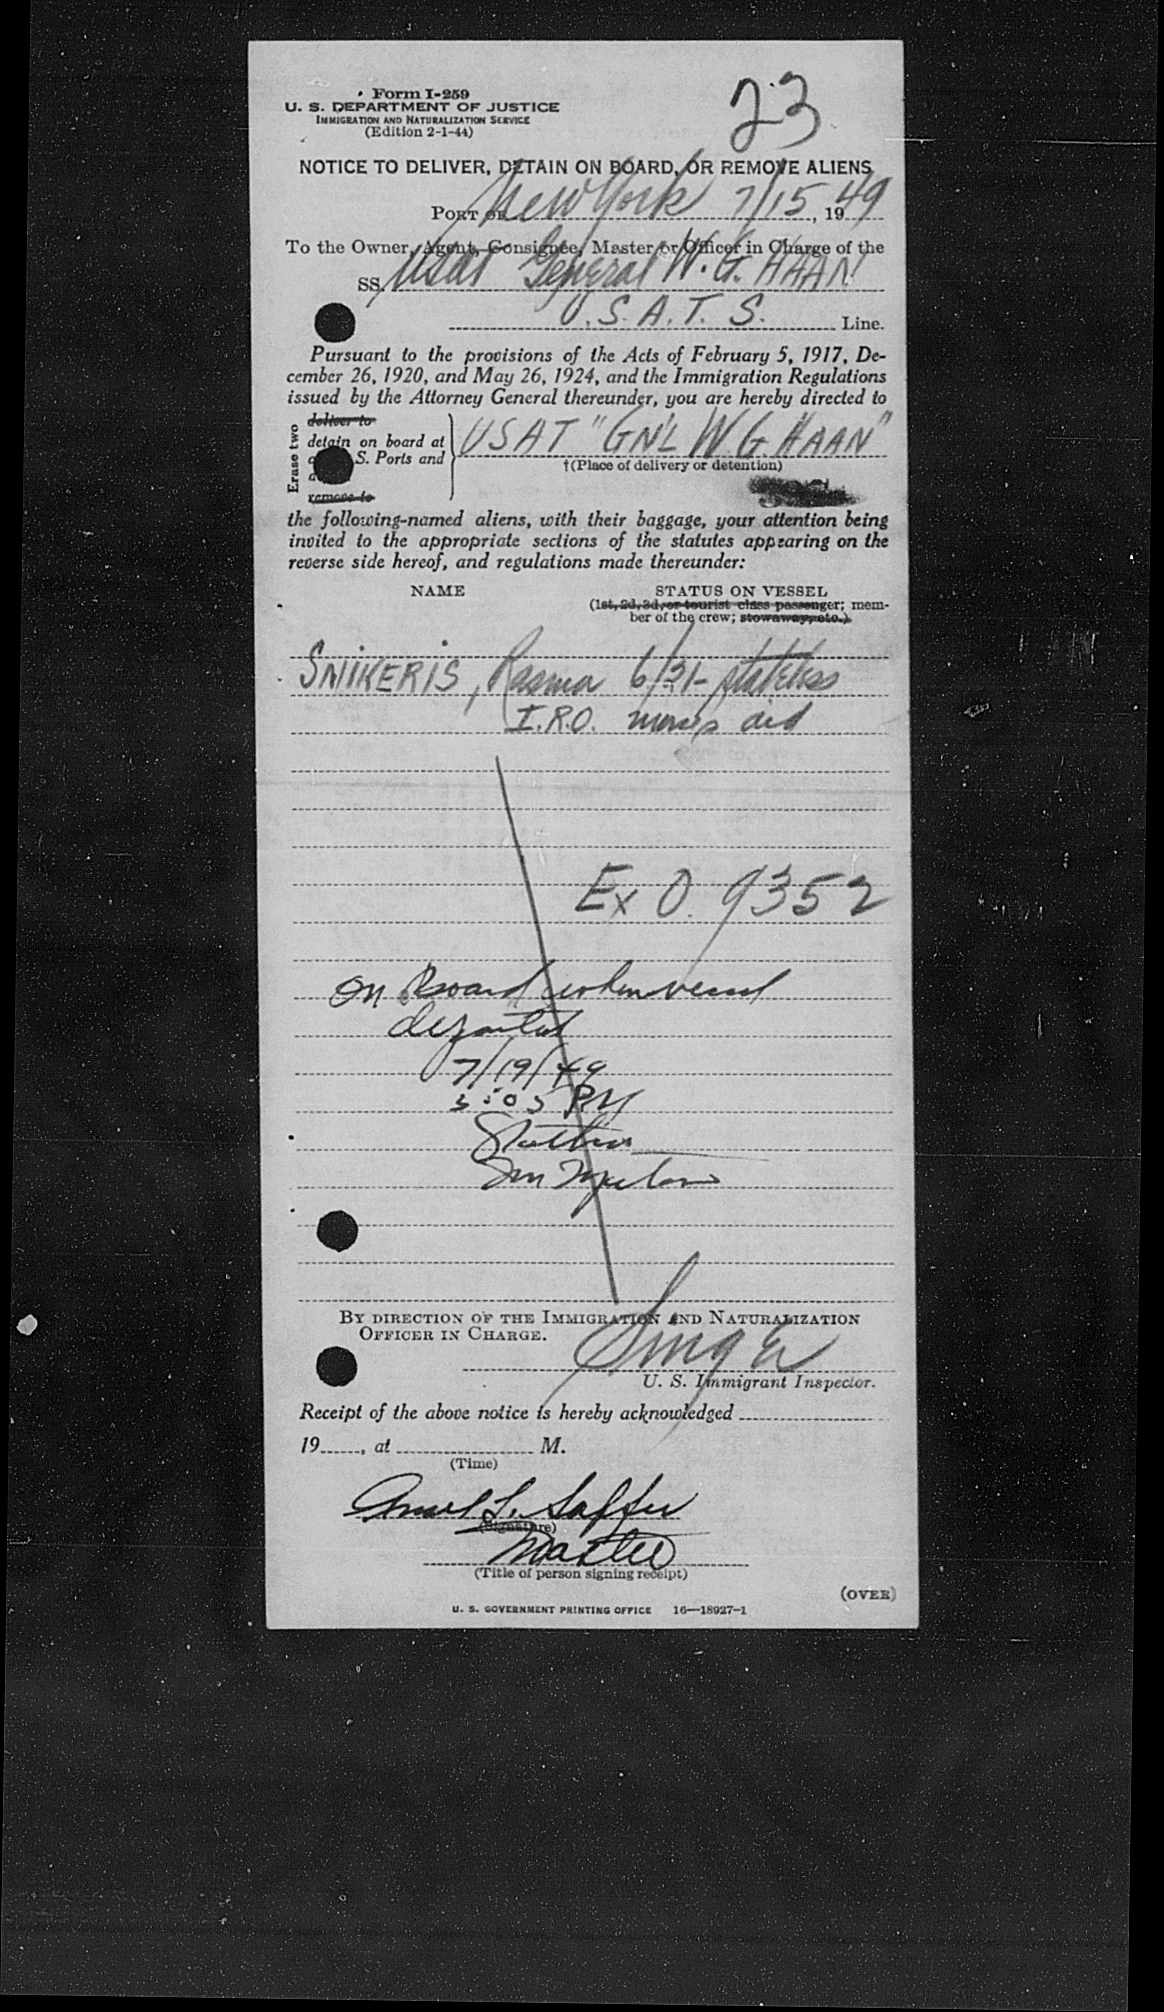 23
Form I-259
U. S. DEPARTMENT OF JUSTICE
IMMIGRATION AND NATURALIZATION SERVICE
(Edition 2-1-44)
NOTICE TO DELIVER, DETAIN ON BOARD, OR REMOVE ALIENS
PORT OF New York 7/15, 1949
To the Owner, Agent, Consignee, Master or Officer in Charge of the
SS USAT General W. G. HAAN
U. S. A. T. S. Line.
Pursuant to the provisions of the Acts of February 5, 1917, De-
cember 26, 1920, and May 26, 1924, and the Immigration Regulations
issued by the Attorney General thereunder, you are hereby directed to
Erase two
deliver to
detain on board at
S. Ports and
remove to
USAT "GN'L W G. HAAN"
†(Place of delivery or detention)
the following-named aliens, with their baggage, your attention being
invited to the appropriate sections of the statutes appearing on the
reverse side hereof, and regulations made thereunder:
NAME STATUS ON VESSEL
(1st, 2d, 3d, or tourist class passenger; mem-
ber of the crew; stowaway, etc.)
SNIKERIS, Rasma 6/31- stateless
I.R.O. aid
Ex O. 9352
On Board when vessel
departed
7/19/49
5:05 PM
Inspector
BY DIRECTION OF THE IMMIGRATION AND NATURALIZATION
OFFICER IN CHARGE.
Singer
U. S. Immigrant Inspector.
Receipt of the above notice is hereby acknowledged
19 , at M.
(Time)
L. Saffer
(Signature)
Master
(Title of person signing receipt)
(OVER)
U. S. GOVERNMENT PRINTING OFFICE 16—18927-1